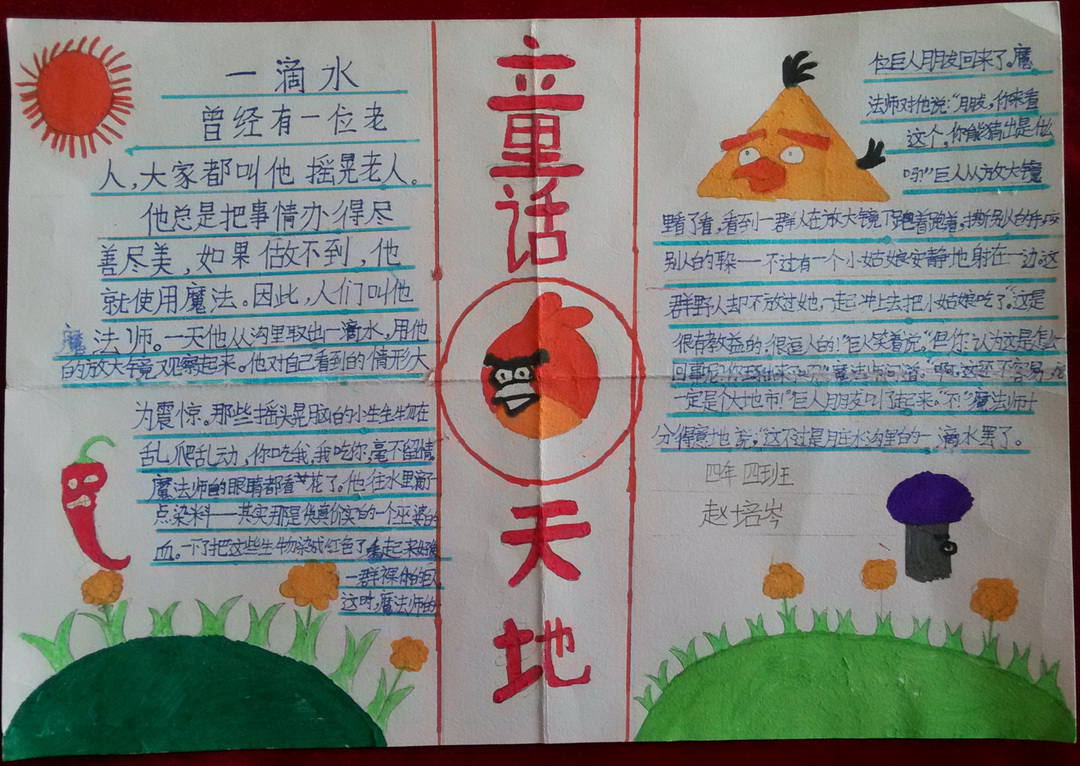 一滴水
曾经有一位老
人,大家都叫他摇晃老人。
他总是把事情办得尽
善尽美,如果做不到,他
就使用魔法。因此,人们叫他
魔法师。一天他从沟里取出一滴水,用他
的放大镜观察起来。他对自己看到的情形大
为震惊。那些摇头晃脑的小生生物在
乱爬乱动,你吃我,我吃你,毫不留情
魔法师的眼睛都看花了。他往水里滴了
点染料——其实那是货真价实的一个巫婆的
血。一下了把这些生物染成红色了看起来好像
一群裸体的巨
这时,魔法师的
童话
天地
位巨人朋友回来了。魔
法师对他说:“朋友,你来看
这个,你能猜出是什么
吗”巨人从方放大镜
里看了看,看到一群人在放大镜下跑着跑着,撕别人的
别人的——不过有一个小姑娘安静地射在一边这
群野人却不放过她,一起冲上去把小姑娘吃了。“这是
很有教益的,很逗人的!”巨人笑着说。“但你认为这是怎么
回事呢你到出来了吗?”魔法师问道。“啊,这还不容易
一定是个大地市!”巨人朋友叫了起来。“不”魔法师十
分得意地说,“这不过是月在水沟里白的一滴水罢了。
四年四班
赵培岑